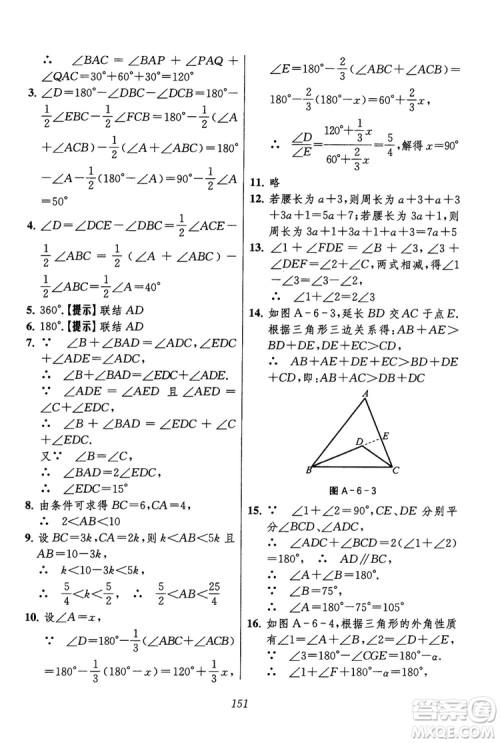 ∴ ∠BAC=∠BAP+∠PAQ+
∠QAC=30°+60°+30°=120°
3. ∠D=180°-∠DBC-∠DCB=180°-
1/2∠EBC-1/2∠FCB=180°-1/2(∠A+
∠ACB)-1/2(∠A+∠ABC)=180°-
1/2(180°+∠A)=90°-1/2∠A
4. ∠D=∠DCE-∠DBC=1/2∠ACE-
1/2∠ABC=1/2(∠ACE-∠ABC)=
1/2∠A ∴ 1/2∠A=40°
5. 360°.【提示】联结 AD
6. 180°.【提示】联结 AD
7. ∵ ∠B+∠BAD=∠ADE+∠EDC,
∴ ∠B+∠BAD=∠ADE.
∵ ∠ADE=∠AED 且 ∠AED=
∠C+∠EDC,
∴ ∠B+∠BAD=∠EDC+∠C+
∠EDC.
又∵ ∠B=∠C,
∴ ∠BAD=2∠EDC=30°.
∴ ∠EDC=15°
8. 由条件可求得 BC=6,CA=4,
∴ 2<AB<10
9. 设 BC=3k,CA=2k,则 k<AB<5k
且 AB=10-5k.
∴ k<10-5k<5k.
∴ 5/4<k<5/2. ∴ 5/2<AB<25/4
10. 设∠A=x,
∵ ∠D=180°-1/3(∠ABC+∠ACB)
=180°-1/3(180°-x)=120°+1/3x,
∠E=180°-2/3(∠ABC+∠ACB)
=180°-2/3(180°-x)=60°+2/3x,
∴ ∠D/∠E=120°+1/3x/60°+2/3x=5/4,解得 x=90°
11. 略
12. 若腰长为 a+3,则周长为 a+3+a+3
+3a+1=5a+7;若腰长为 3a+1,则
周长为 3a+1+3a+1+a+3=7a+5
13. ∠1+∠FDE=∠B+∠2,∠3+
∠DEF=∠C+∠2,两式相减,得∠1
-∠3=∠B-∠C=0,
∴ ∠1=∠3
14. 如图 A-6-3,延长 BD 交 AC 于点 E.
根据三角形三边关系得:AB+AE>
BD+DE,DE+CE>CD.两式相加
得:AB+AE+DE+CE>BD+DE+
CD,即:AB+AC>BD+CD
A
D
E
B
C
图 A-6-3
15. ∵ ∠1+∠2=90°,CE、DE 分别平
分∠BCD、∠ADC,
∴ ∠ADC+∠BCD=2(∠1+∠2)
=180°. ∴ AD∥BC.
∴ ∠A+∠B=180°.
∵ ∠A=75°,∴ ∠B=180°-75°
=105°
16. 如图 A-6-4,根据三角形的外角性质
有∠1=∠2+∠F,∠2=∠3+∠E.
∵ ∠3=180°-∠CGE=180°-α.
∴ ∠1-∠F+180°-α=180°,
151